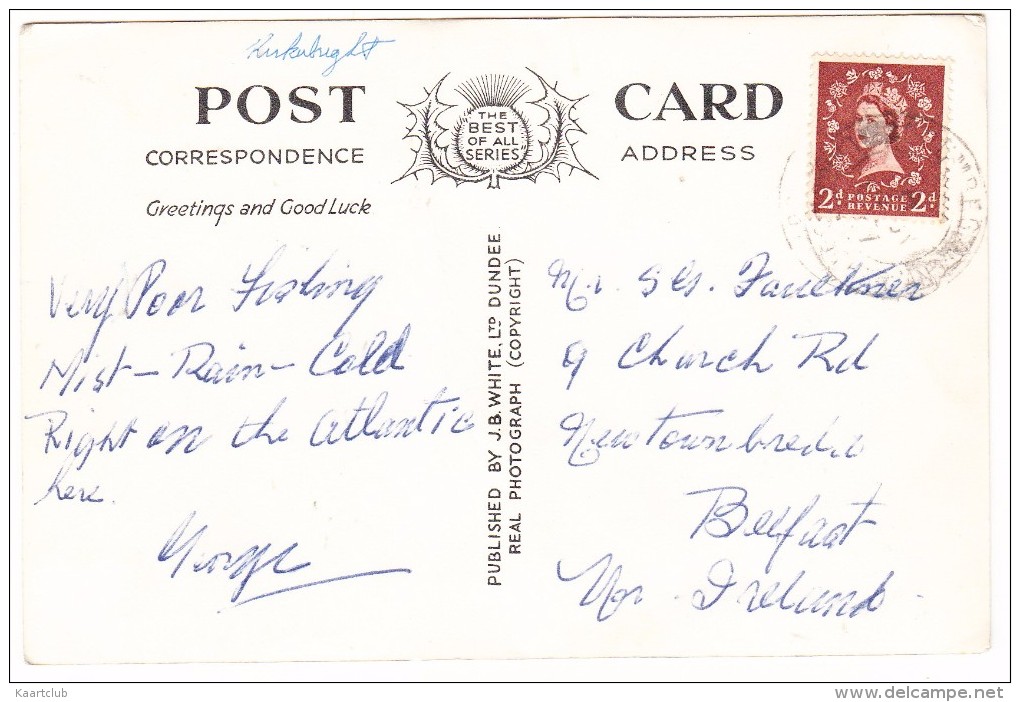 Kirkubright
POST CARD
THE
BEST
OF ALL
SERIES
CORRESPONDENCE
ADDRESS
Greetings and Good Luck
2d POSTAGE REVENUE 2d
Very Poor Fishing
Mist - Rain - Cold
Right on the Atlantic
here.
George
PUBLISHED BY J.B. WHITE, LTD DUNDEE.
REAL PHOTOGRAPH (COPYRIGHT)
Mr. Faulkner
9 Church Rd
Newtownbreda
Belfast
Nor. Ireland.
Kaartclub
www.delcampe.net